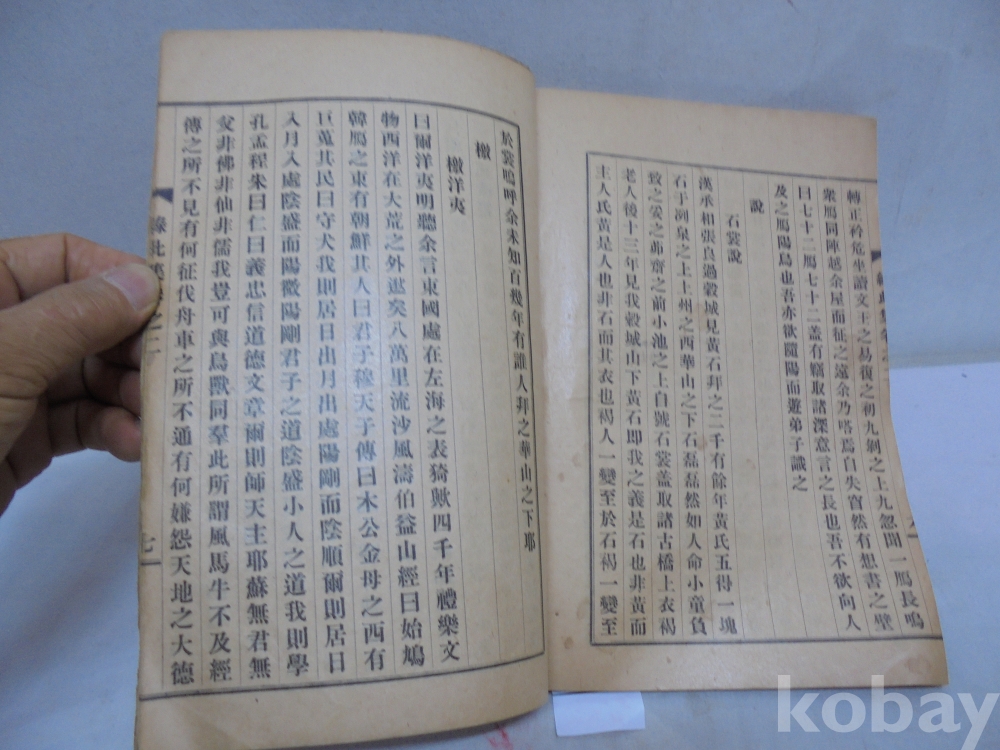 轉正衿危坐讀文王之易復之初九剝之上九忽聞一鴈長鳴
衆鴈同陣越余屋而征之遠余乃嗒焉自失窅然有想書之壁
曰七十二鴈七十二盖有竊取諸深意言之長也吾不欲向人
及之鴈陽鳥也吾亦欲隨陽而遊弟子識之
說
石裳說
漢承相張良過穀城見黃石拜之二千有餘年黃氏五得一塊
石于冽泉之上上州之西華山之下石磊磊然如人命小童負
致之妥之茆齋之前小池之上自號石裳盖取諸古橋上衣褐
老人後十三年見我穀城山下黃石即我之義是石也非黃而
主人氏黃是人也非石而其衣也褐人一變至於石褐一變至
於裳嗚呼余未知百幾年有誰人拜之華山之下耶
檄
檄洋夷
曰爾洋夷明聽余言東國處在左海之表猗歟四千年禮樂文
物西洋在大荒之外逖矣八萬里流沙風濤伯益山經曰始鳩
韓鴈之東有朝鮮其人曰君子穆天子傳曰木公金母之西有
巨蒐其民曰守犬我則居日出月出處陽剛而陰順爾則居日
入月入處陰盛而陽微陽剛君子之道陰盛小人之道我則學
孔孟程朱曰仁曰義忠信道德文章爾則師天主耶蘇無君無
父非佛非仙非儒我豈可與鳥獸同羣此所謂風馬牛不及經
傳之所不見有何征伐舟車之所不通有何嫌怨天地之大德
七
kobay